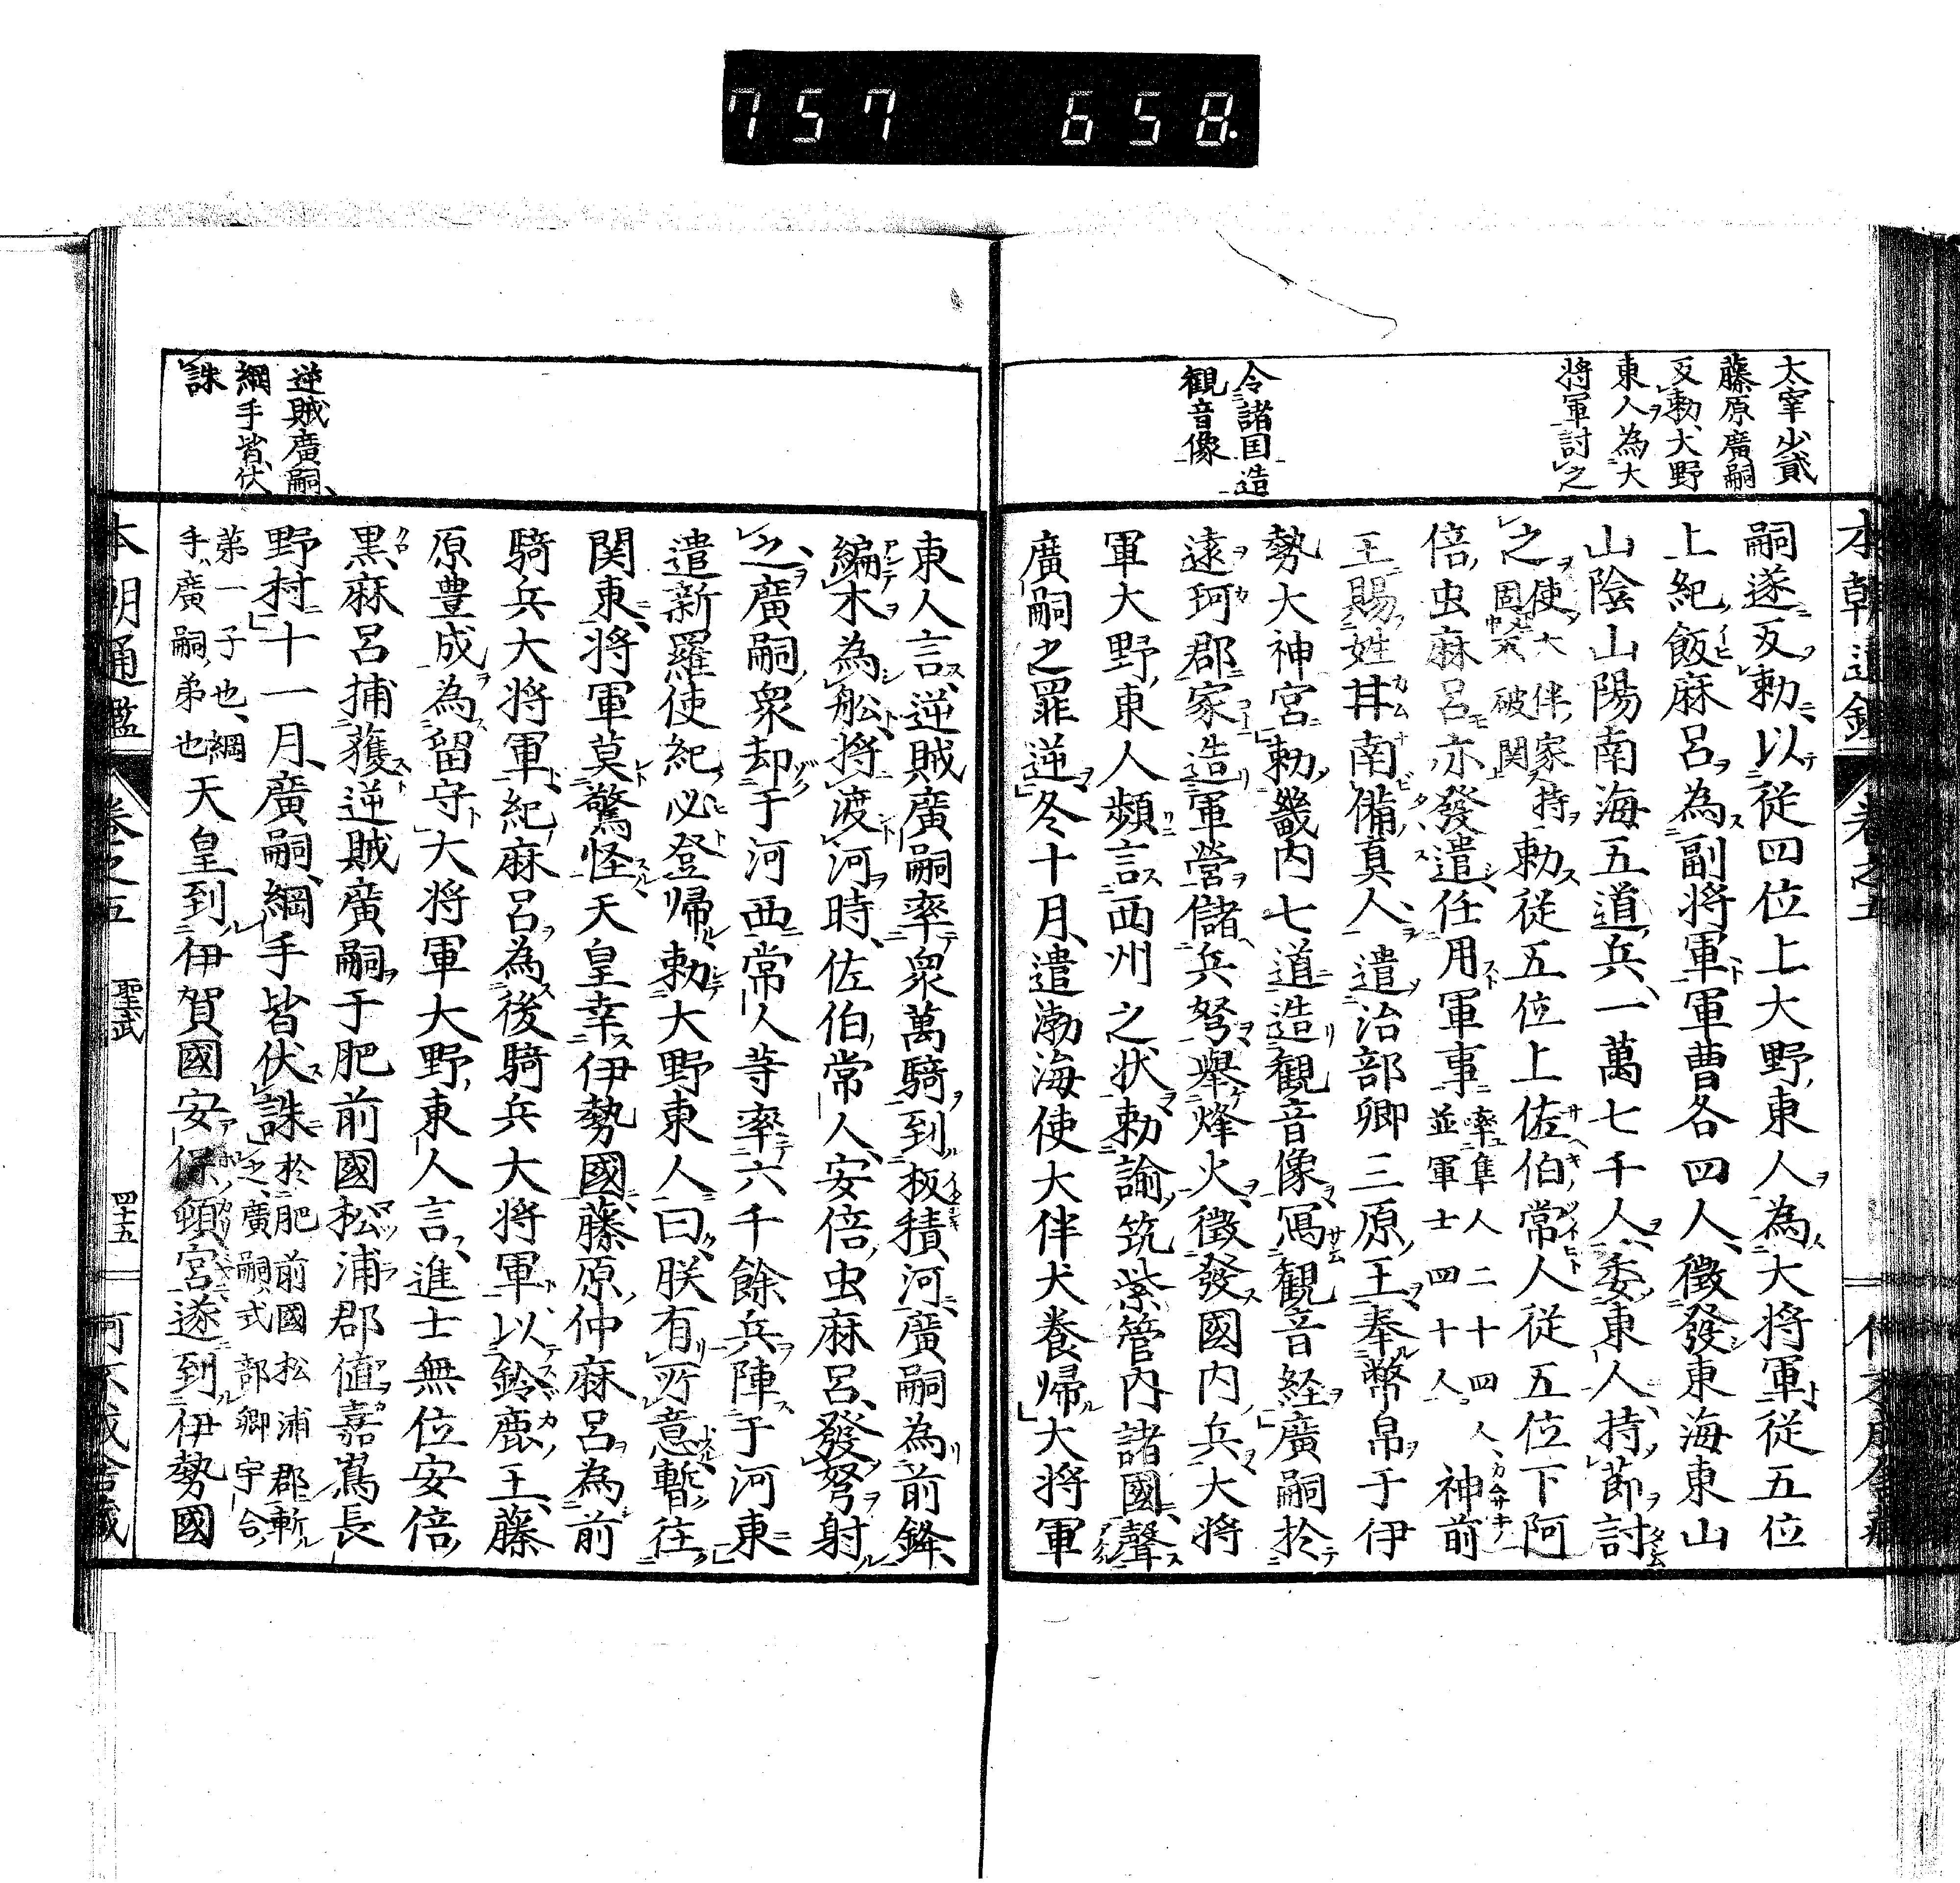 757 658.
太宰少貳
藤原廣嗣
反勅大野
東人為大
將軍討之
令諸国造
観音像
嗣遂反勅以従四位上大野東人為大将軍従五位
上紀飯麻呂為副将軍軍曹各四人徴發東海東山
山陰山陽南海五道兵一萬七千人委東人持節討
之
使大伴家持
勅従五位上佐伯常人従五位下阿
倍虫麻呂亦發遣任用軍事
率隼人二十四人
並軍士四十人
神前
王賜姓甘南備真人遣治部卿三原王奉幣帛于伊
勢大神宮勅畿内七道造観音像冩観音経廣嗣於
遠珂郡家造軍營儲兵弩舉烽火徴發國内兵大将
軍大野東人頻言西州之状勅諭筑紫管内諸國聲
廣嗣之罪逆冬十月遣渤海使大伴犬養帰大将軍
逆賊廣嗣
綱手皆伏
誅
東人言逆賊廣嗣率衆萬騎到板積河廣嗣為前鋒
編木為舩将渡河時佐伯常人安倍虫麻呂發弩射
之廣嗣衆却于河西常人等率六千餘兵陣于河東
遣新羅使紀必登帰勅大野東人曰朕有所意暫往
関東将軍莫驚怪天皇幸伊勢國藤原仲麻呂為前
騎兵大将軍紀麻呂為後騎兵大将軍以鈴鹿王藤
原豊成為留守大将軍大野東人言進士無位安倍
黒麻呂捕獲逆賊廣嗣于肥前國松浦郡値嘉嶌長
野村十一月廣嗣綱手皆伏誅
於肥前國松浦郡斬
之廣嗣式部卿宇合
第一子也綱
手廣嗣弟也
天皇到伊賀國安保頓宮遂到伊勢國
本朝通鑑
巻之五
聖武
四十五